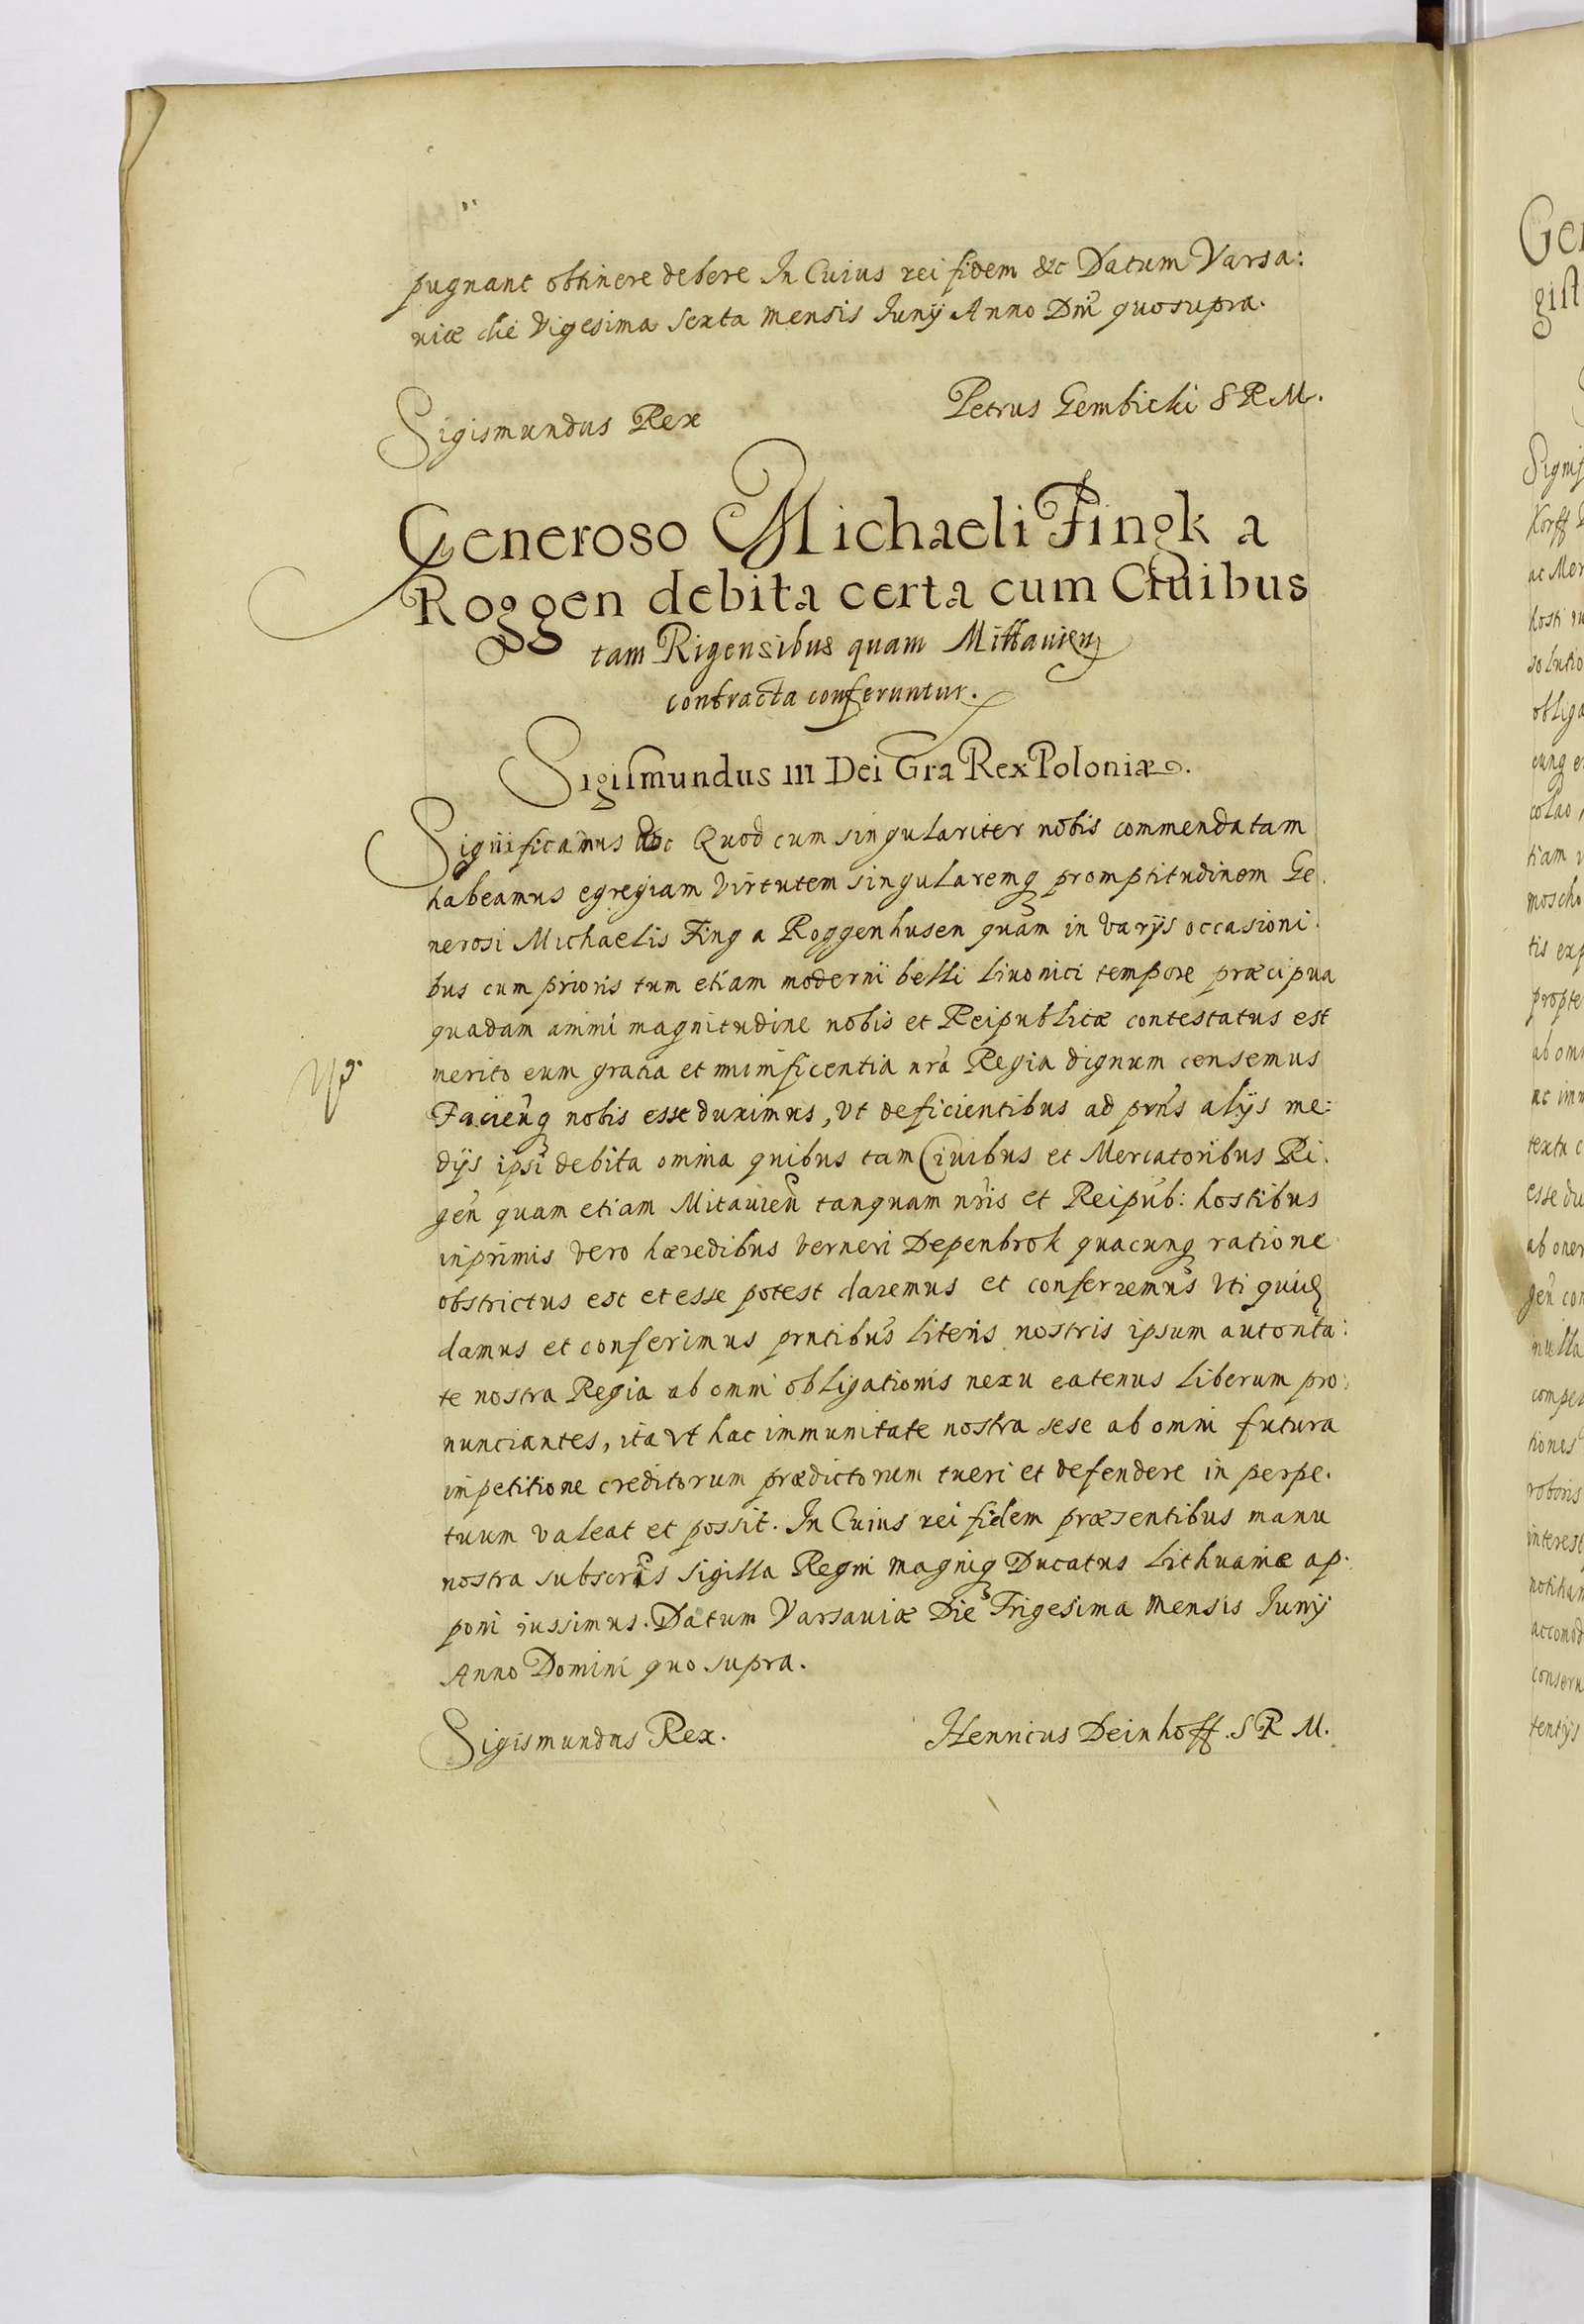 pugnant obtinere debere In Cuius rei fidem &c Datum Varsa:
uiæ die Vigesima Sexta Mensis Iunij Anno Dni quo supra.
Sigismundus Rex
Petrus Gembicki S R M.
Generoso Michaeli Fingk a
Roggen debita certa cum Ciuibus
tam Rigensibus quam Mittauien
contracta conferuntur.
Sigismundus III Dei Gra Rex Poloniæ.
Significamus &c Quod cum singulariter nobis commendatam
habeamus egregiam Virtutem singularemq promptitudinem Ge.
nerosi Michaelis Fing a Roggenhusen quam in Varijs occasioni.
bus cum prioris tum etiam moderni belli Liuonici tempore præcipua
quadam animi magnitudine nobis et Reipublicæ contestatus est
merito eum gratia et munificentia nra Regia dignum censemus
Facienq nobis esse duximus, Vt deficientibus ad prns alijs me:
dijs ipsi debita omnia quibus tam Ciuibus et Mercatoribus Ri.
gen quam etiam Mitauien tanquam nris et Reipub: hostibus
inprimis Vero hæredibus Verneri Depenbrok quacunq ratione
obstrictus est et esse potest daremus et conferremus Vti quid
damus et conferimus prntibus Literis nostris ipsum autorita:
te nostra Regia ab omni obligationis nexu eatenus Liberum pro:
nunciantes, ita Vt hac immunitate nostra sese ab omni futura
impetitione creditorum prædictorum tueri et defendere in perpe.
tuum Valeat et possit. In Cuius rei fidem præsentibus manu
nostra subscris Sigilla Regni Magniq Ducatus Lithuaniæ ap.
poni iussimus. Datum Varsauiæ Die Trigesima Mensis Iunij
Anno Domini quo supra.
Sigismundus Rex.
Henricus Deinhoff. S R M.